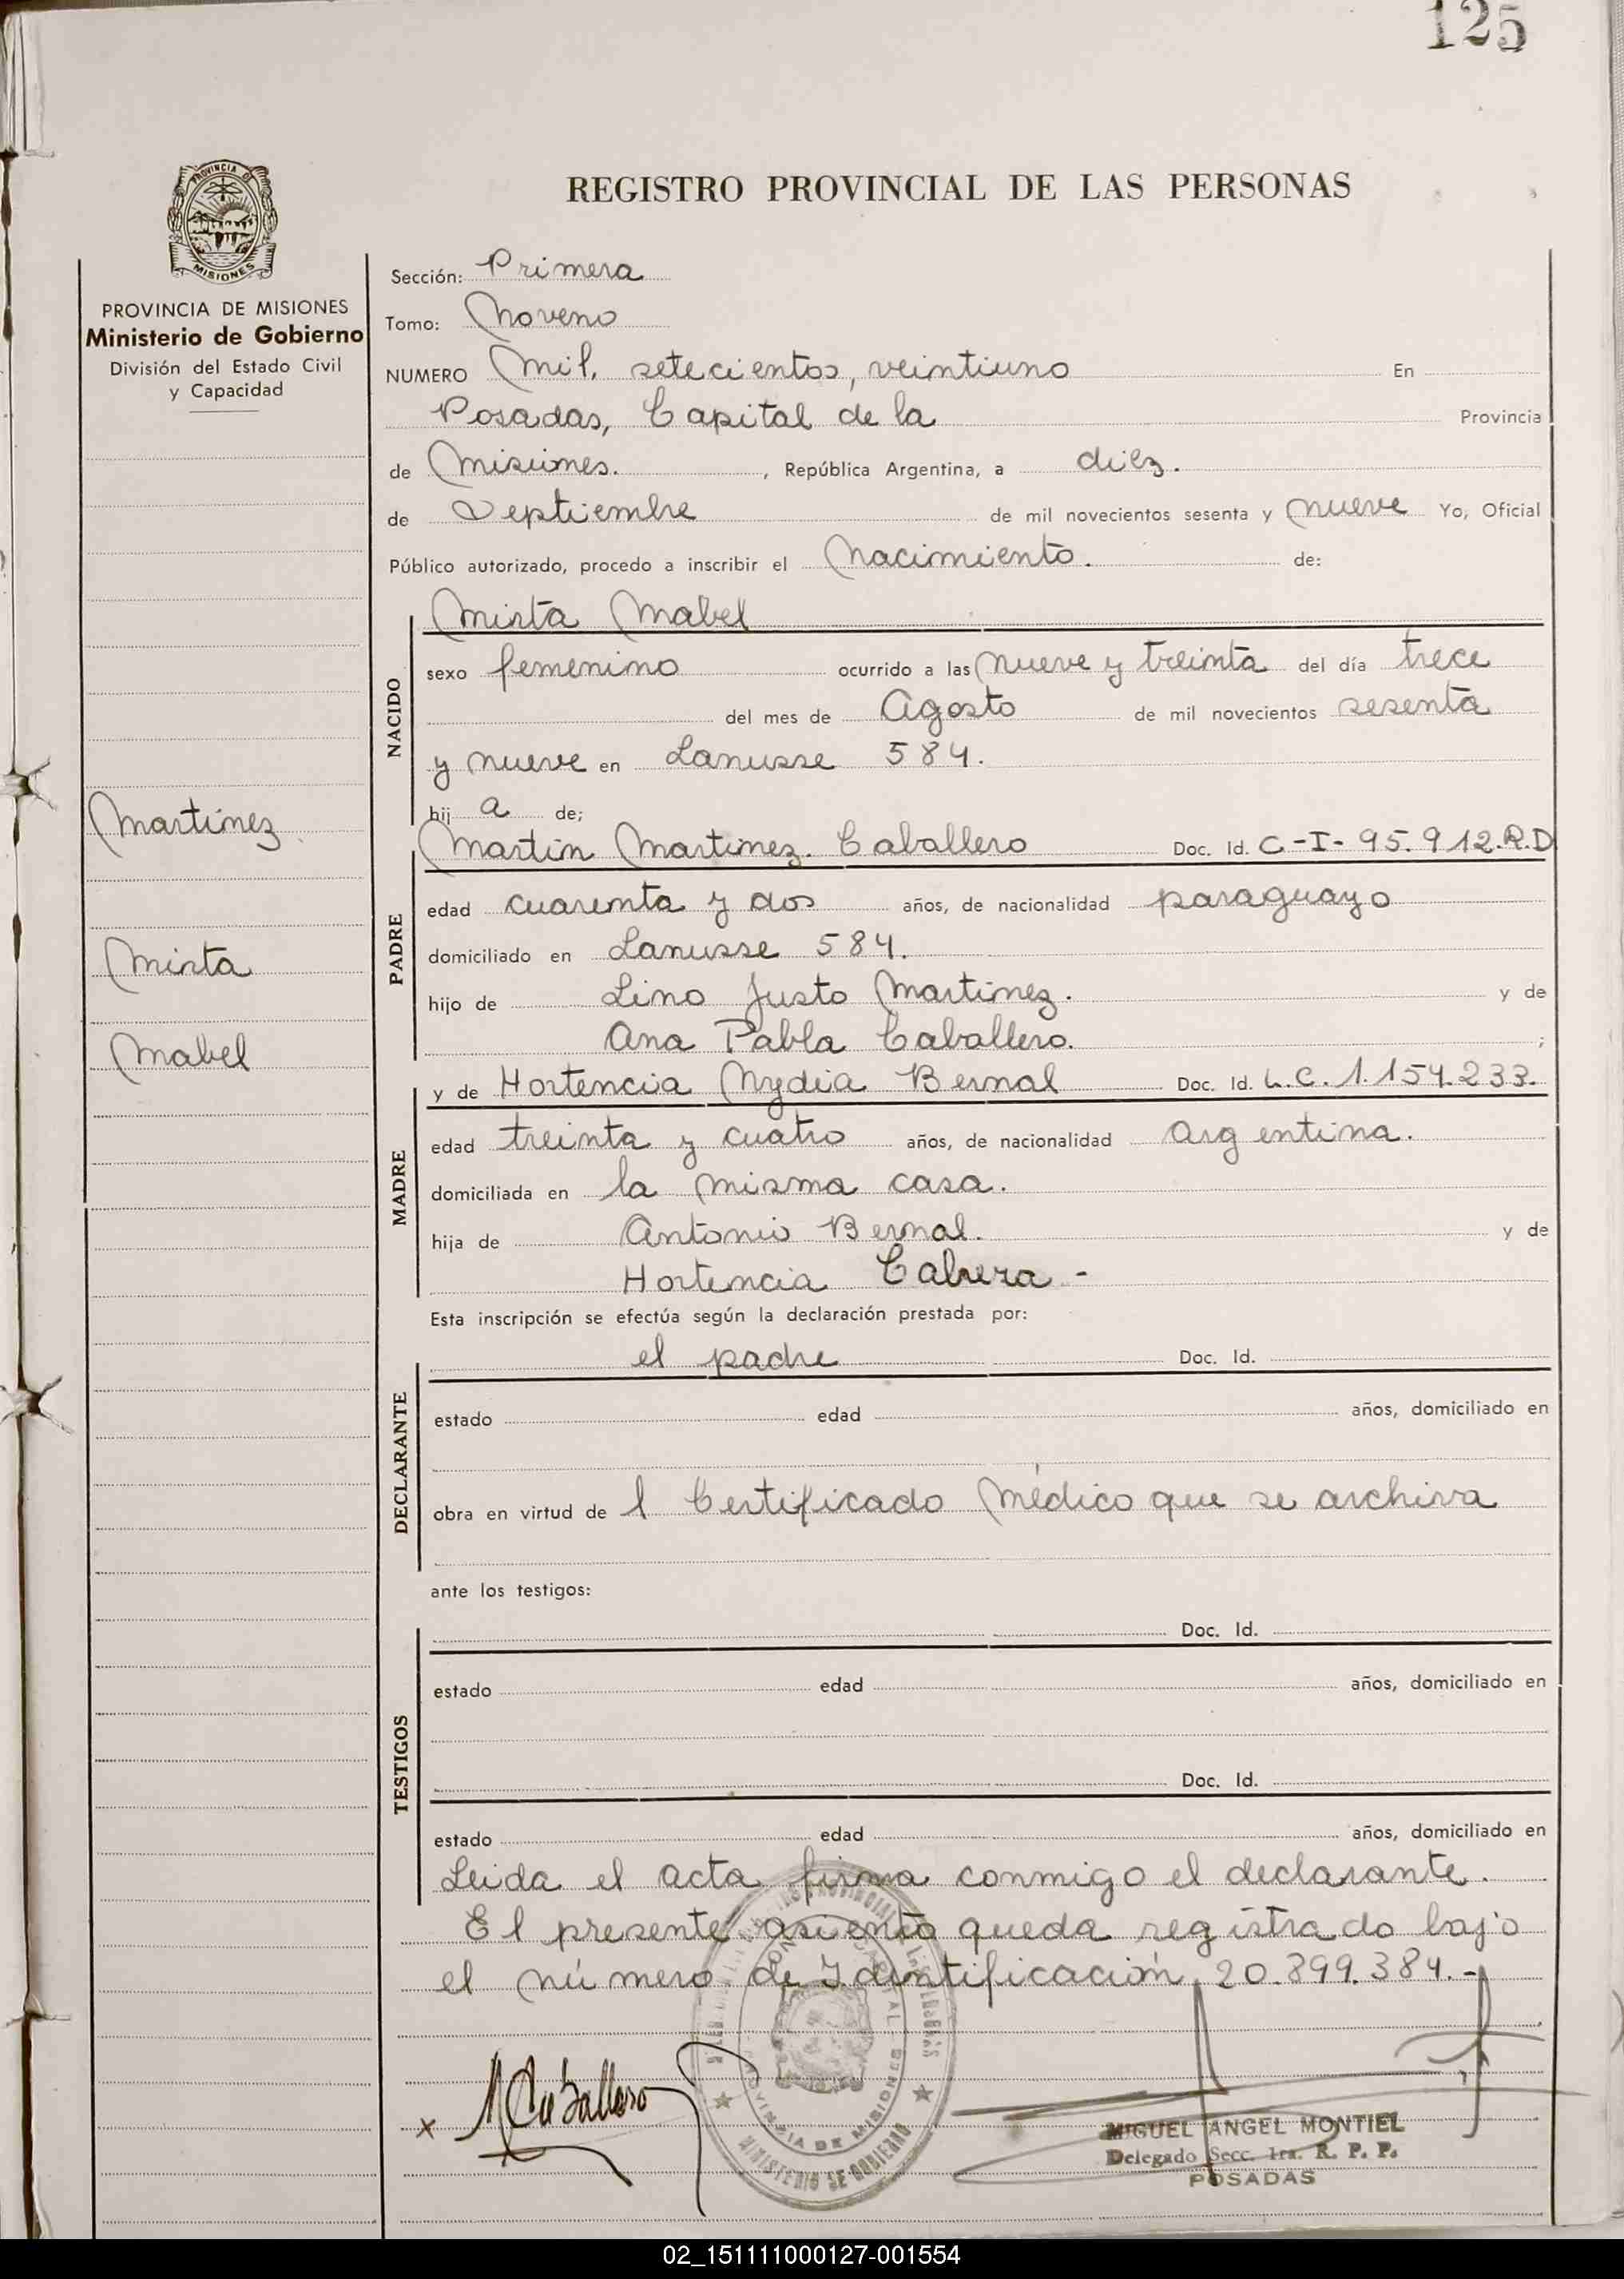 125
PROVINCIA DE
MISIONES
REGISTRO PROVINCIAL DE LAS PERSONAS
PROVINCIA DE MISIONES
Ministerio de Gobierno
División del Estado Civil
y Capacidad
Martinez
Mirta
Mabel
Sección: Primera
Tomo: Noveno
NUMERO Mil, setecientos, veintiuno En
Posadas, Capital de la Provincia
de Misiones. , República Argentina, a diez.
de Septiembre de mil novecientos sesenta y nueve Yo, Oficial
Público autorizado, procedo a inscribir el Nacimiento. de:
Mirta Mabel
NACIDO
sexo femenino ocurrido a las nueve y treinta del día trece
del mes de Agosto de mil novecientos sesenta
y nueve en Lanusse 584.
hij a de;
Martin Martinez. Caballero Doc. Id. C-I- 95.912.R.D
PADRE
edad cuarenta y dos años, de nacionalidad paraguayo
domiciliado en Lanusse 584.
hijo de Lino Justo Martinez. y de
Ana Pabla Caballero. ;
y de Hortencia Nydia Bernal Doc. Id. L.C. 1.154.233.
MADRE
edad treinta y cuatro años, de nacionalidad Argentina.
domiciliada en la misma casa.
hija de Antonio Bernal. y de
Hortencia Cabrera -
Esta inscripción se efectúa según la declaración prestada por:
el padre Doc. Id.
DECLARANTE
estado edad años, domiciliado en
obra en virtud de l Certificado Médico que se archiva
ante los testigos:
Doc. Id.
TESTIGOS
estado edad años, domiciliado en
Doc. Id.
estado edad años, domiciliado en
Leida el acta firma conmigo el declarante.
El presente asiento queda registrado bajo
el número de Identificación 20.899.384.-
x M Caballero
MINISTERIO DE GOBIERNO
PROVINCIA DE MISIONES
MIGUEL ANGEL MONTIEL
Delegado Secc. 1ra. R. P. P.
POSADAS
02_151111000127-001554